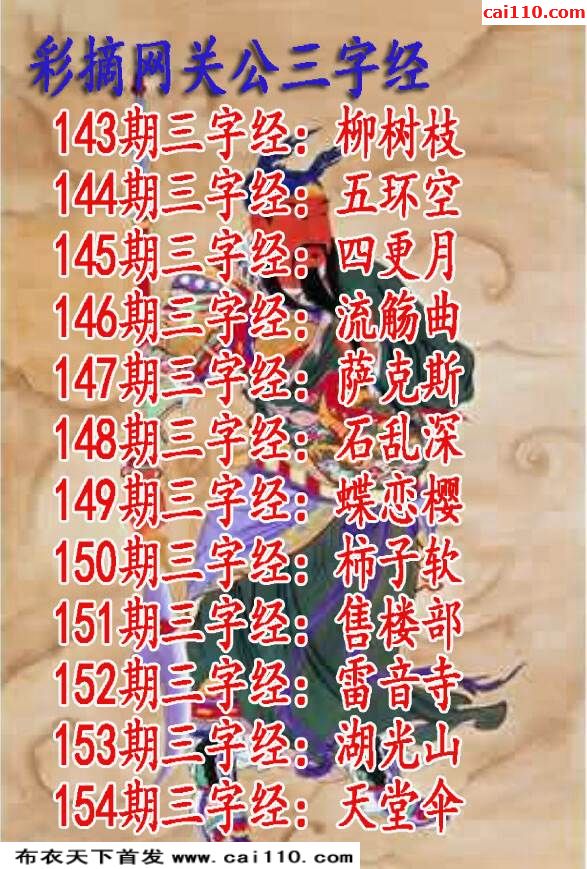 cai110.com
彩摘网关公三字经
143期三字经：柳树枝
144期三字经：五环空
145期三字经：四更月
146期三字经：流觞曲
147期三字经：萨克斯
148期三字经：石乱深
149期三字经：蝶恋樱
150期三字经：柿子软
151期三字经：售楼部
152期三字经：雷音寺
153期三字经：湖光山
154期三字经：天堂伞
布衣天下首发 www.cai110.com